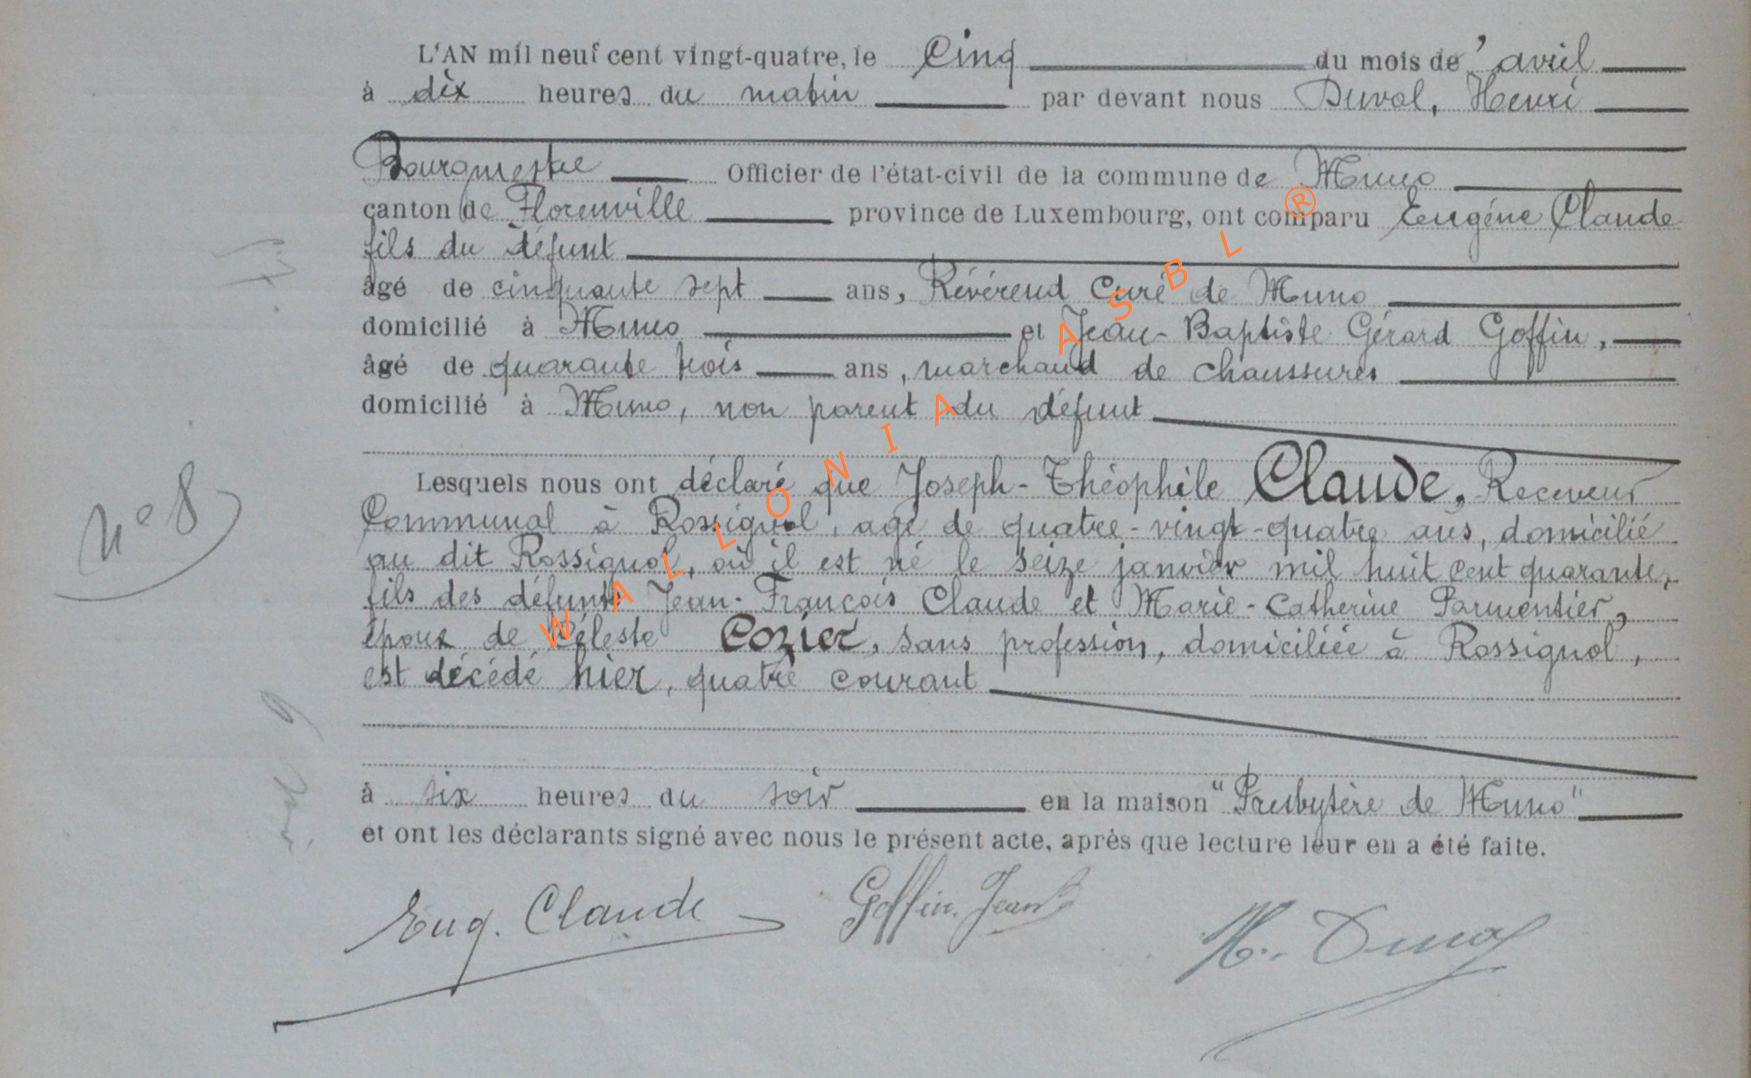 L'AN mil neuf cent vingt-quatre, le Cinq du mois de d'avril
à dix heures du matin par devant nous Duval, Henri
Bourgmestre Officier de l'état-civil de la commune de Muno
canton de Florenville province de Luxembourg, ont comparu Eugène Claude
fils du défunt
âgé de cinquante sept ans, Révérend Curé de Muno
domicilié à Muno et Jean-Baptiste Gérard Goffin,
âgé de quarante trois ans, marchand de chaussures
domicilié à Muno, non parent du défunt
Lesquels nous ont déclaré que Joseph-Théophile Claude, Receveur
Communal à Rossignol, agé de quatre-vingt-quatre ans, domicilié
au dit Rossignol, où il est né le seize janvier mil huit cent quarante,
fils des défunts Jean-François Claude et Marie-Catherine Parmentier,
époux de Céleste Cozier, sans profession, domiciliée à Rossignol,
est décédé hier, quatre courant
à six heures du soir en la maison "Presbytère de Muno"
et ont les déclarants signé avec nous le présent acte, après que lecture leur en a été faite.
N° 8
Eug. Claude Goffin. Jean H. Duval
WALLONIA ASBL ®